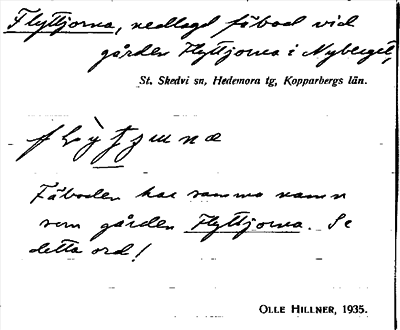 Flyttjorna, nedlagd fäbod vid
gården Flyttjorna i Nyberget,
St. Skedvi sn, Hedemora tg, Kopparbergs län.
Fäboden har samma namn
som gården Flyttjorna. Se
detta ord!
OLLE HILLNER, 1935.